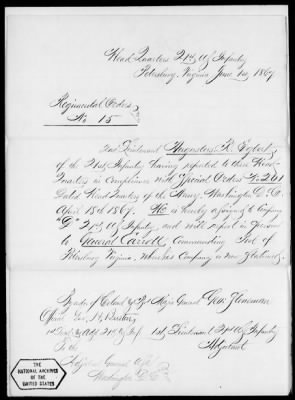 Head Quarters 21st U.S. Infantry
Petersburg, Virginia June 1st 1867
Regimental Orders
No 15
Lieutenant Augustus R. Egbert
of the 21st Infantry having reported to these Head-
Quarters in compliance with Special Orders No 201
dated Head Quarters of the Army, Washington D.C.
April 18th 1867. He is hereby assigned to Company
"D" 21st U.S. Infantry, and will report in person
to General Carroll, commanding Post of
Petersburg Virginia, where his company is now stationed.
By order of Colonel & Bvt Major General Geo. Stoneman
Official
1st Lieut & Adjt 21st U.S. Inf 1st Lieutenant 21st U.S. Infantry
To the Adjutant
Adjutant General
Washington D.C.
THE
NATIONAL ARCHIVES
OF THE
UNITED STATES